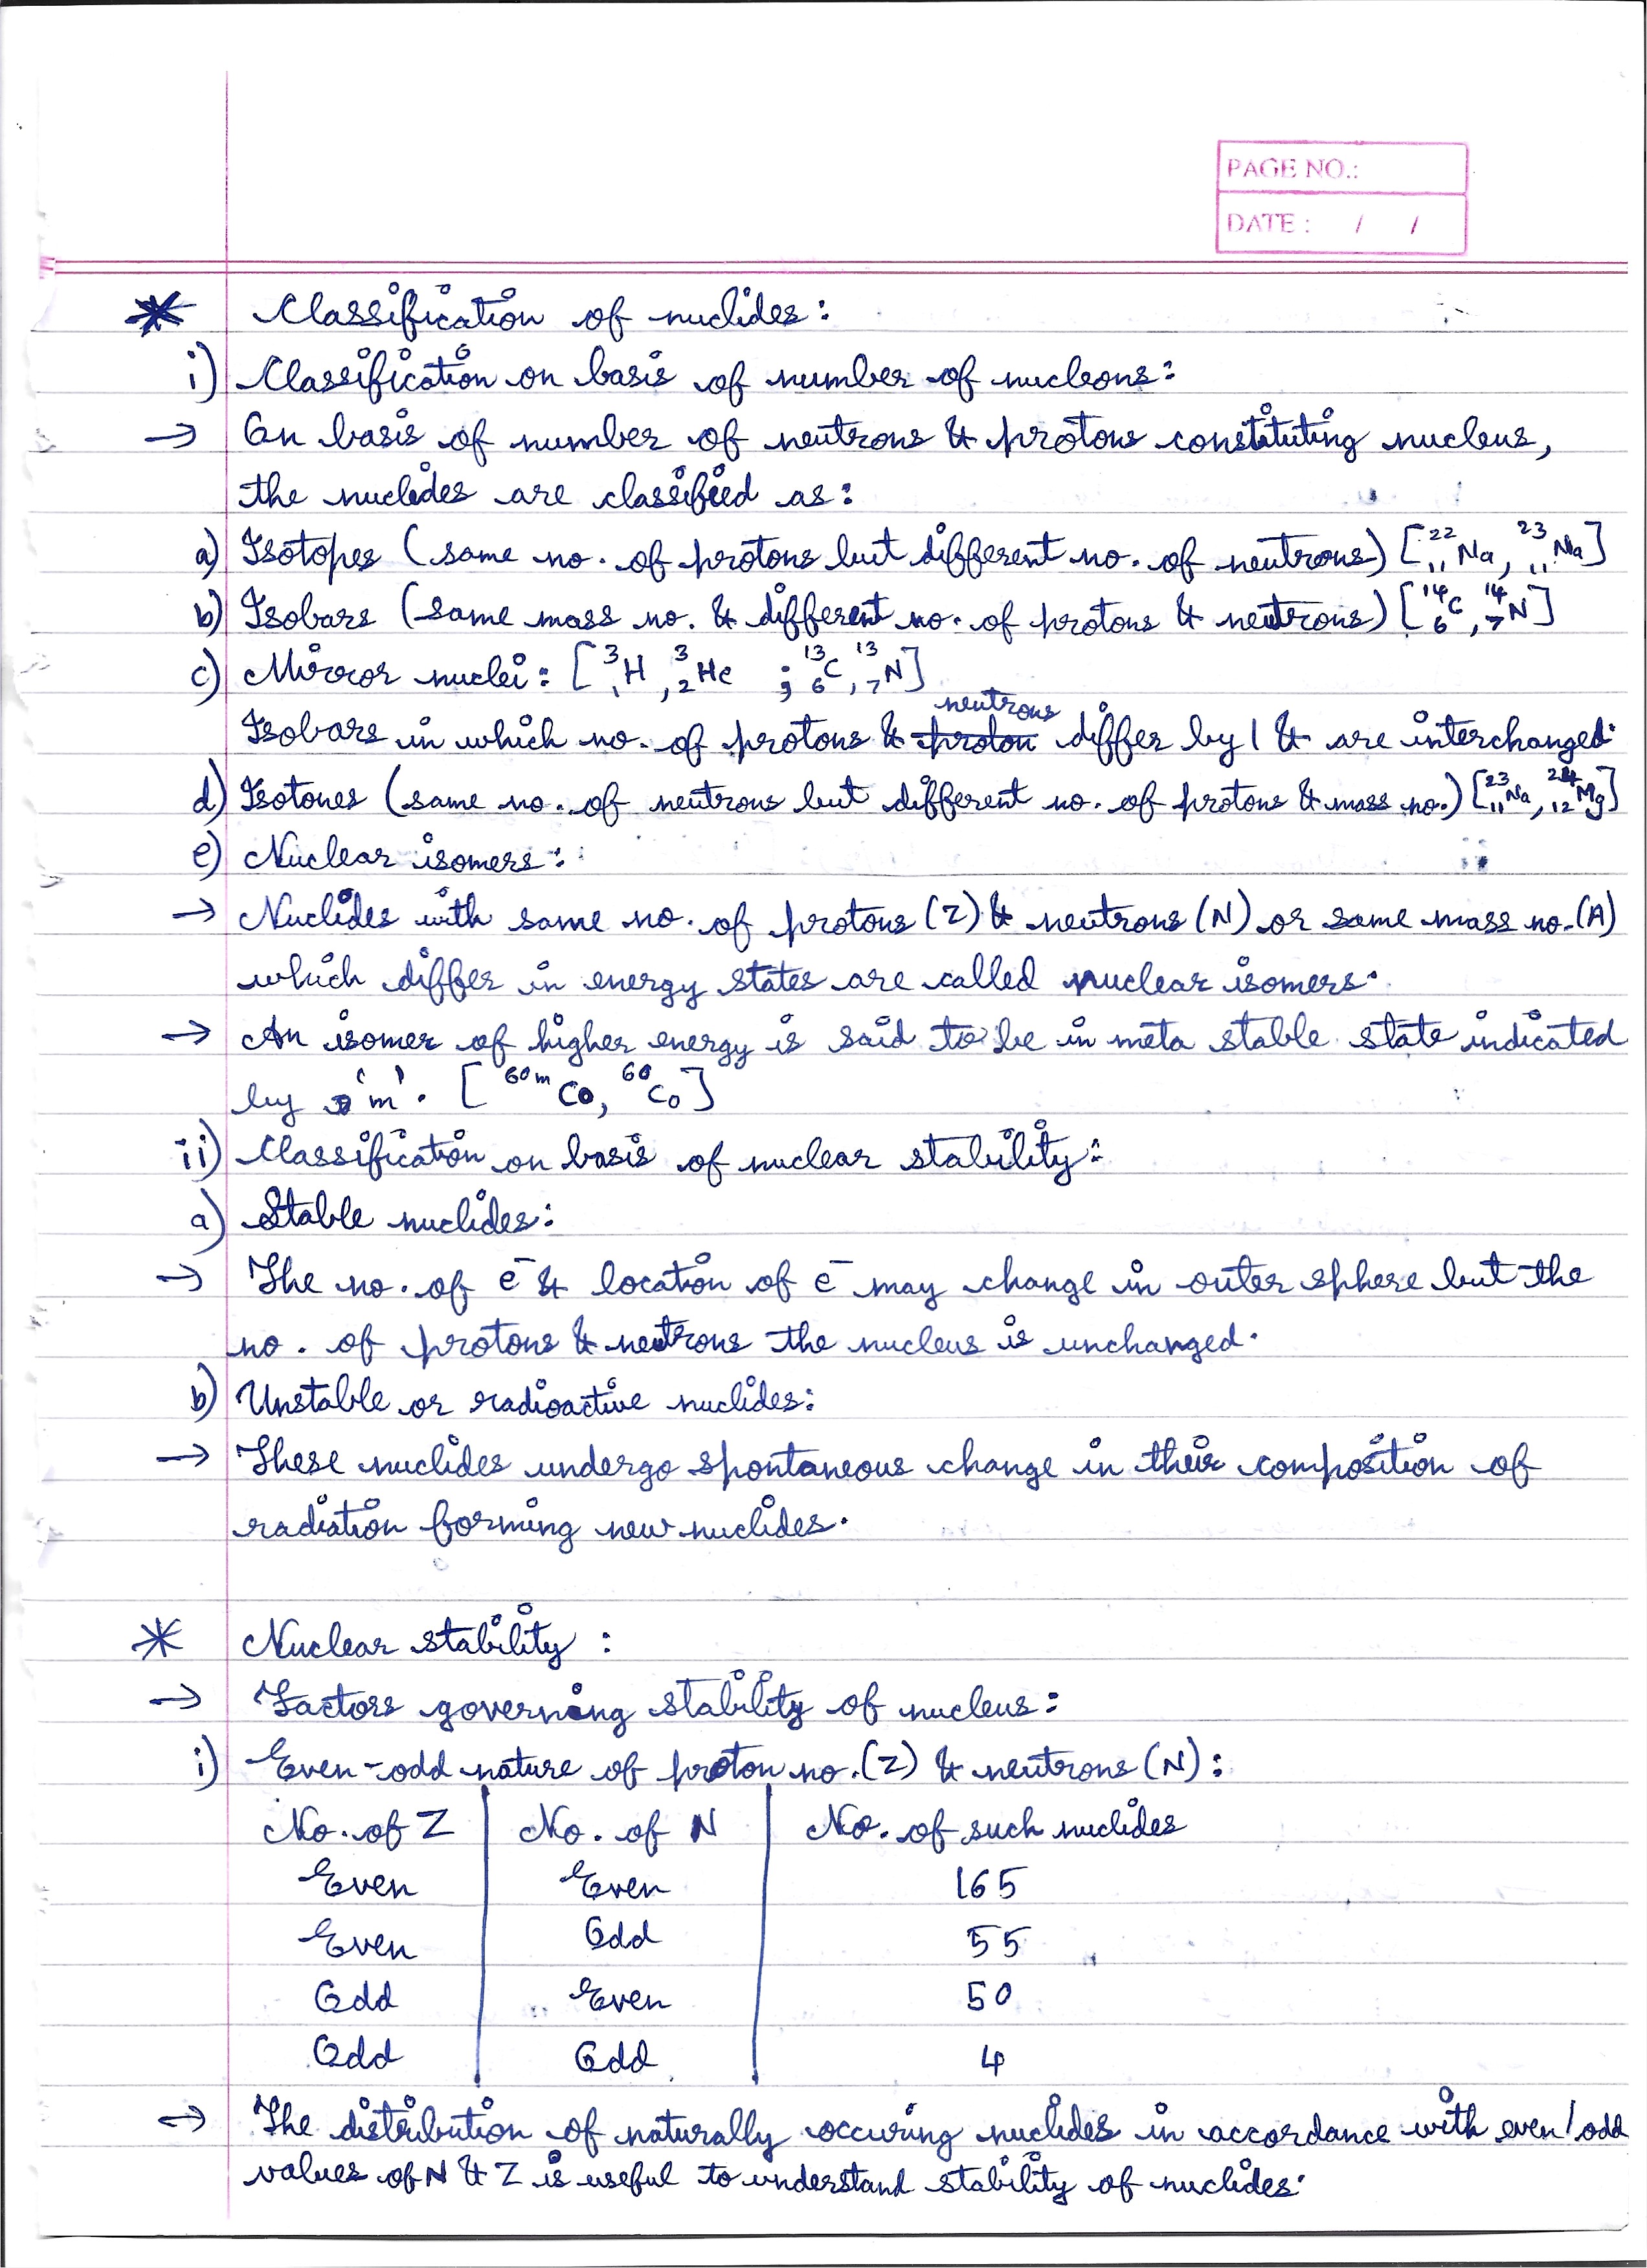 PAGE NO.:
DATE : / /
* Classification of nuclides:
i) Classification on basis of number of nucleons:
→ On basis of number of neutrons & protons constituting nucleus,
the nuclides are classified as:
a) Isotopes (same no. of protons but different no. of neutrons) [²²₁₁Na, ²³₁₁Na]
b) Isobars (same mass no. & different no. of protons & neutrons) [¹⁴₆C, ¹⁴₇N]
c) Mirror nuclei: [³₁H, ³₂He ; ¹³₆C, ¹³₇N]
neutrons
Isobars in which no. of protons & proton differ by 1 & are interchanged.
d) Isotones (same no. of neutrons but different no. of protons & mass no.) [²³₁₁Na, ²⁴₁₂Mg]
e) Nuclear isomers:
→ Nuclides with same no. of protons (Z) & neutrons (N) or same mass no. (A)
which differ in energy states are called nuclear isomers.
→ An isomer of higher energy is said to be in meta stable state indicated
by 'm'. [⁶⁰ᵐCo, ⁶⁰Co]
ii) Classification on basis of nuclear stability:
a) Stable nuclides:
→ The no. of e⁻ & location of e⁻ may change in outer sphere but the
no. of protons & neutrons the nucleus is unchanged.
b) Unstable or radioactive nuclides:
→ These nuclides undergo spontaneous change in their composition of
radiation forming new nuclides.
* Nuclear stability :
→ Factors governing stability of nucleus:
i) Even-odd nature of proton no. (Z) & neutrons (N):
No. of Z No. of N No. of such nuclides
Even Even 165
Even Odd 55
Odd Even 50
Odd Odd 4
→ The distribution of naturally occuring nuclides in accordance with even/odd
values of N & Z is useful to understand stability of nuclides.